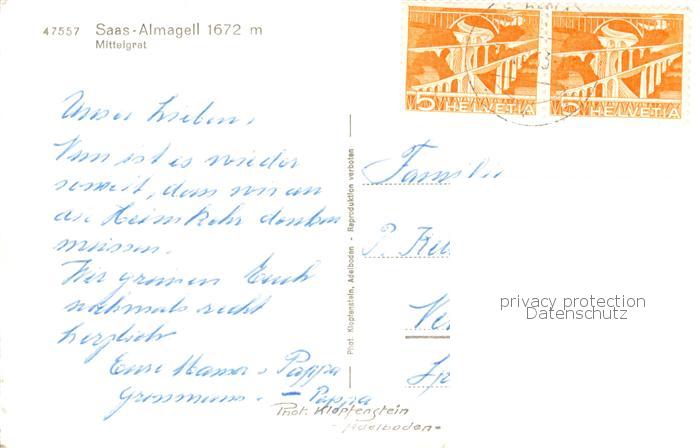 47557 Saas-Almagell 1672 m
Mittelgrat
5 HELVETIA
5 HELVETIA
Unser Lieben,
Nun ist es wieder
soweit, dass wir an
die Heimkehr denken
müssen.
Wir grüssen Euch
nochmals recht
herzlich
Eure Mama - Pappa
Grossmama - Pappa
Phot. Klopfenstein, Adelboden - Reproduktion verboten
Familie
P.
privacy protection
Datenschutz
Phot. Klopfenstein
- Adelboden -